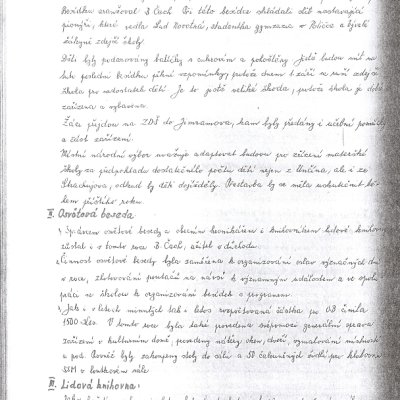 Besídku oranžoval B. Čech. Při této besídce skládali slib nastávající
pionýři, které vedla Lud. Novotná, studentka gymnazia v Poličce a bývalá
žákyně zdejší školy.
Děti byly podarovány balíčky s cukrovím a pohoštěny. Jistě budou mít na
tuto poslední besídku pěkné vzpomínky, protože dnem 1. září se ruší zdejší
škola pro nedostatek dětí. Je to jistě veliká škoda, protože škola je dobře
zařízena a vybavena.
Žáci půjdou na ZDŠ do Jimramova, kam byly předány i učební pomůcky
a část zařízení.
Místní národní výbor uvažuje adaptovat budovu pro zřízení mateřské
školy za předpokladu dostatečného počtu dětí nejen z Unčína, ale i ze
Strachujova, odkud by děti dojížděly. Přestavba by se měla uskutečnit bě-
hem příštího roku.
II. Osvětová beseda
Správcem osvětové besedy a obecním kronikářem i knihovníkem lidové knihovny
zůstal i v tomto roce B. Čech, učitel v důchodu.
Činnost osvětové besedy byla zaměřena k organizování oslav význačných dnů
v roce, zhotovování poutačů na návsi k významným událostem a ve spolu-
práci se školou k organizování besídek s programem.
Jak v letech minulých tak i letos rozpočtovaná částka pro OB činila
1500 Kčs. V tomto roce byla také provedena svépomocí generální oprava
zařízení v kulturním domě, provedeny nátěry oken, dveří, vymalování místností
a pod. Rovněž byly zakoupeny stoly do sálu a 50 čalouněných židlí pro klubovnu
SSM v loutkovém sále.
III. Lidová knihovna: